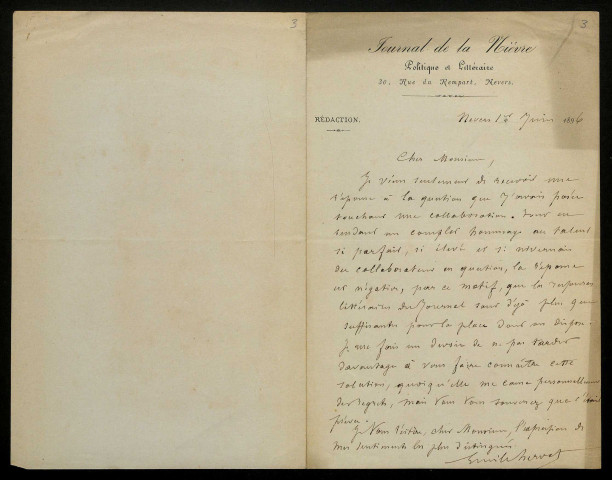 3
3
Journal de la Nièvre
Politique et Littéraire
20, Rue du Rempart, Nevers.
RÉDACTION.
Nevers, 1er Juin 1896
Cher Monsieur,
Je viens seulement de recevoir une
réponse à la question que j'avais posée
touchant une collaboration. Tout en
rendant un complet hommage au talent
si parfait, si élevé et si nivernais
du collaborateur en question, la réponse
est négative, par ce motif, que les ressources
littéraires du Journal sont déjà plus que
suffisantes pour la place dont on dispose.
Je me fais un devoir de ne pas tarder
davantage à vous faire connaître cette
solution, quoiqu'elle me cause personnellement
des regrets, mais vous vous souvenez que c'était
prévu.
Je vous réitère, cher Monsieur, l'expression de
mes sentiments les plus distingués